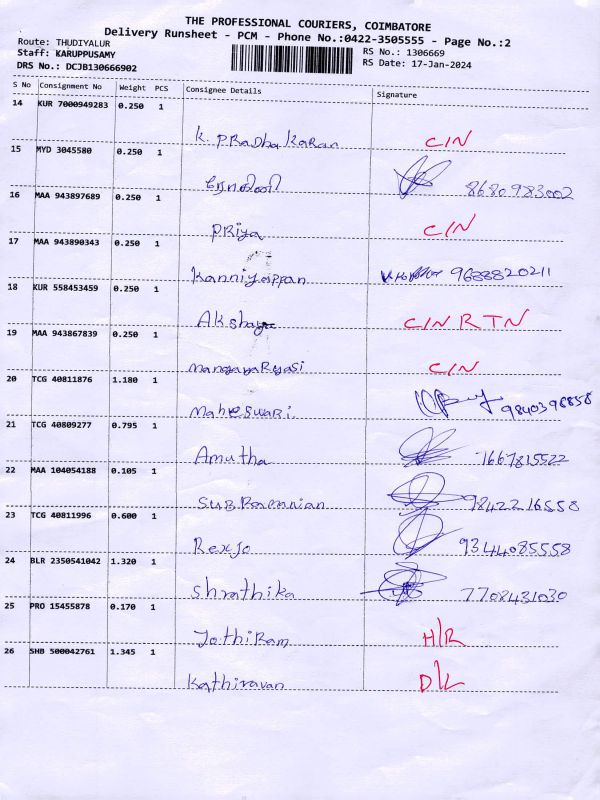 THE PROFESSIONAL COURIERS, COIMBATORE
Delivery Runsheet - PCM - Phone No.:0422-3505555 - Page No.:2
Route: THUDIYALUR
Staff: KARUPPUSAMY
RS No.: 1306669
DRS No.: DCJB130666902
RS Date: 17-Jan-2024
S No Consignment No Weight PCS Consignee Details Signature
14 KUR 7000949283 0.250 1
K. PRadha Karan C/N
15 MYD 3045580 0.250 1
8680983002
16 MAA 943897689 0.250 1
PRiya C/N
17 MAA 943890343 0.250 1
Kanniyappan 9688820211
18 KUR 558453459 0.250 1
Akshaya C/N RTN
19 MAA 943867839 0.250 1
C/N
20 TCG 40811876 1.180 1
Maheswari. 9840396858
21 TCG 40809277 0.795 1
Amutha 7667815522
22 MAA 104054188 0.105 1
9842216558
23 TCG 40811996 0.600 1
Rexjo 9344085558
24 BLR 2350541042 1.320 1
Shrathika 7708431030
25 PRO 15455878 0.170 1
JothiRam H/R
26 SHB 500042761 1.345 1
Kathiravan D/L